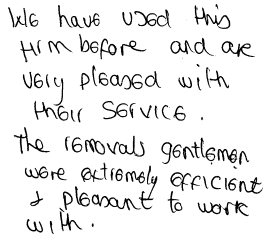 We have used this
firm before and are
very pleased with
their service.
The removals gentlemen
were extremely efficient
& pleasant to work
with.